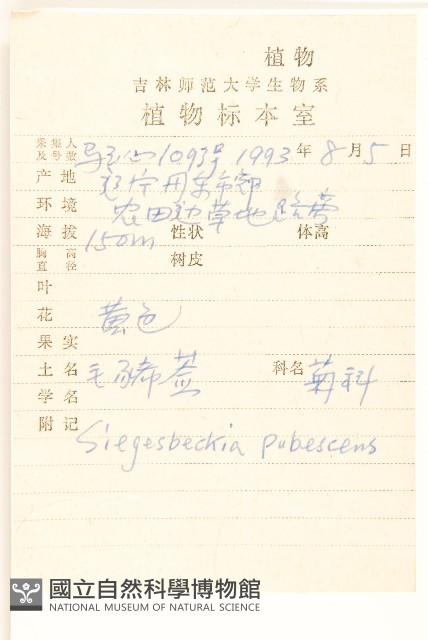 植物
吉林师范大学生物系
植物标本室
采集人及号数 1093号 1993年8月5日
产地 辽宁丹东市郊
环境 农田边草地路旁
海拔 150m 性状 体高
胸高直径 树皮
叶
花 黄色
果实
土名 毛豨莶 科名 菊科
学名
附记 Siegesbeckia pubescens
國立自然科學博物館
NATIONAL MUSEUM OF NATURAL SCIENCE